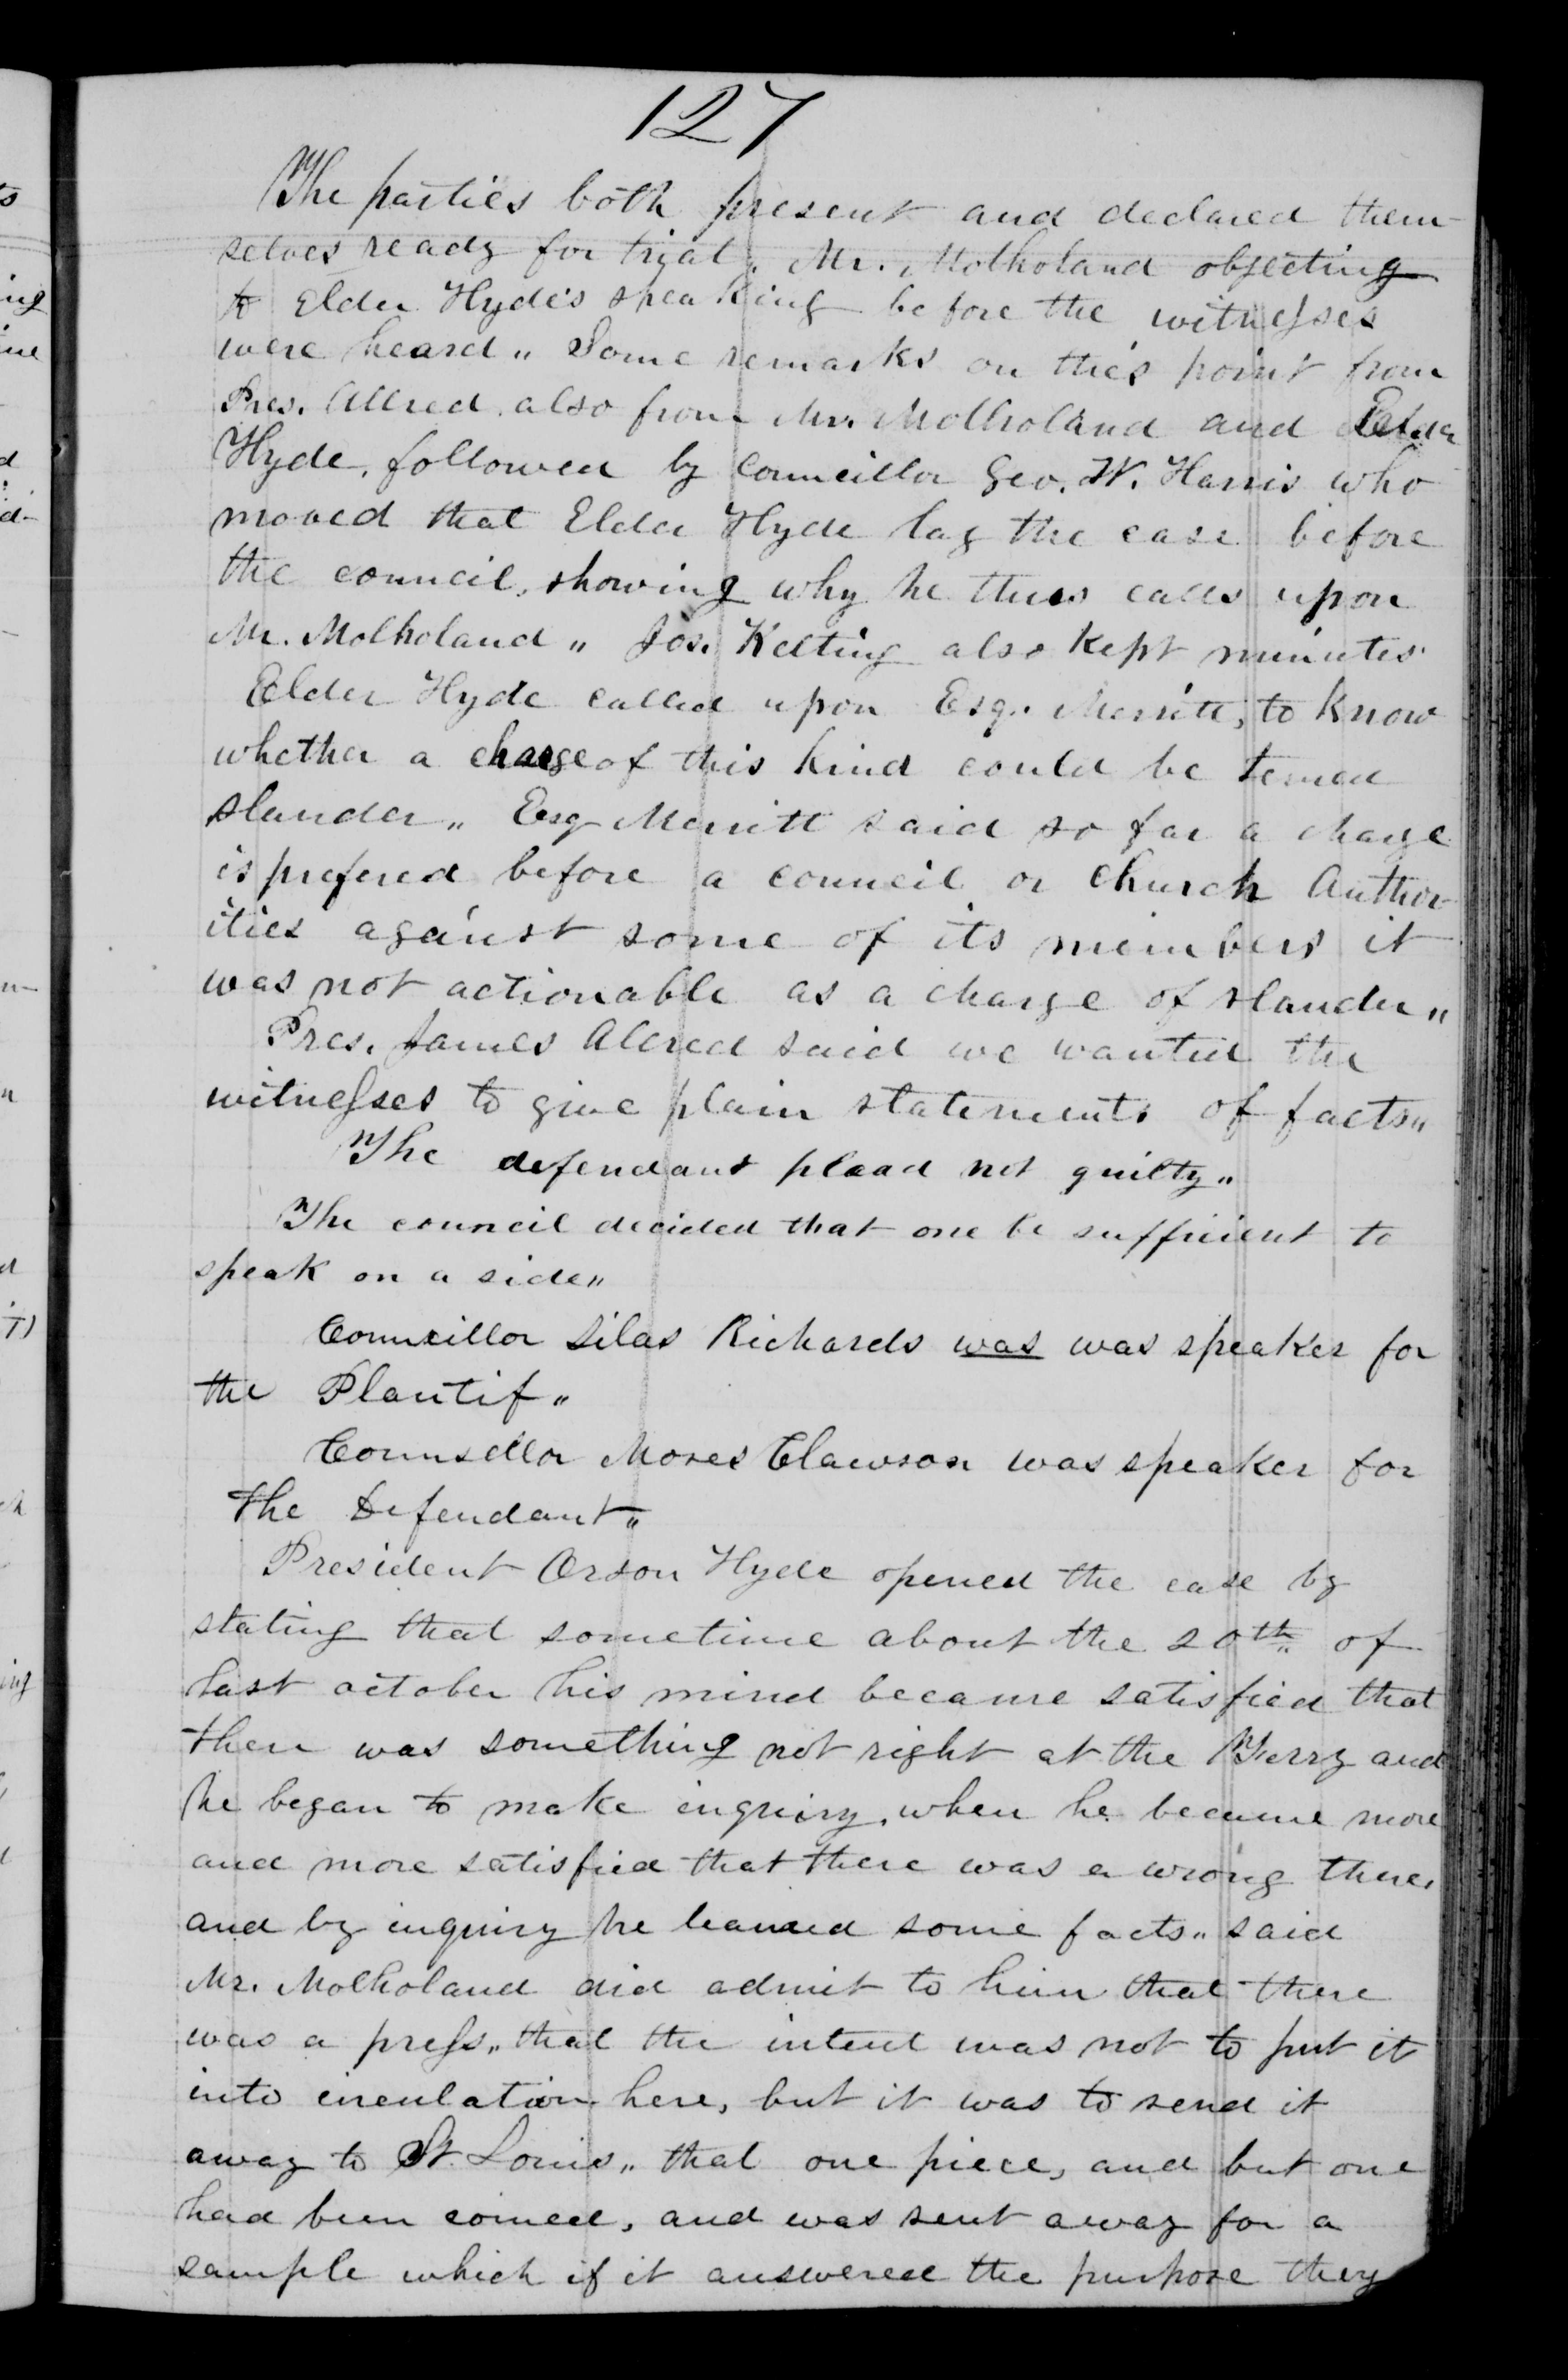 127
The parties both present and declared them-
selves ready for trial. Mr. Molholand objecting
to Elder Hyde's speaking before the witnesses
were heard„ Some remarks on this point from
Pres. Allred also from Mr. Molholand and Elder
Hyde, followed by Councillor Geo. W. Harris who
moved that Elder Hyde lay the case before
the council, showing why he thus calls upon
Mr. Molholand„ Jos. Kelting also kept minutes
Elder Hyde called upon Esq. Merritt, to know
whether a charge of this kind could be termed
slander„ Esq Merritt said so far a charge
is prefered before a council or church Author-
ities against some of its members it
was not actionable as a charge of slander„
Pres. James Allred said we wanted the
witnesses to give plain statements of facts„
The defendant plead not guilty„
The council decided that one be sufficient to
speak on a side„
Councillor Silas Richards was was speaker for
the Plantif„
Counsellor Moses Clawson was speaker for
the Defendant„
President Orson Hyde opened the case by
stating that sometime about the 20th of
last october his mind became satisfied that
there was something not right at the Ferry and
he began to make inquiry, when he became more
and more satisfied that there was a wrong there,
and by inquiry he learned some facts„ said
Mr. Molholand did admit to him that there
was a press„ that the intent was not to put it
into circulation here, but it was to send it
away to St. Louis„ that one piece, and but one
had been coined, and was sent away for a
sample which if it answered the purpose they